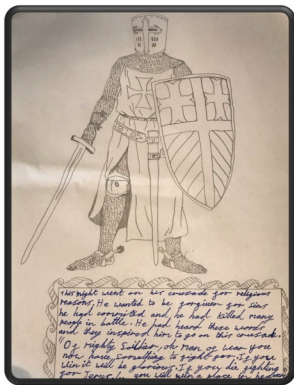 This Knight went on his crusade for religious
reasons, He wanted to be forgiven for sins
he had commited and he had killed many
people in battle. He had heard these words
and they inspired him to go on this crusade.
"O mighty Soldier, oh man of war you
now have something to fight for. If you
win it will be glorious. If you die fighting
for Jerus you will win a place in heaven